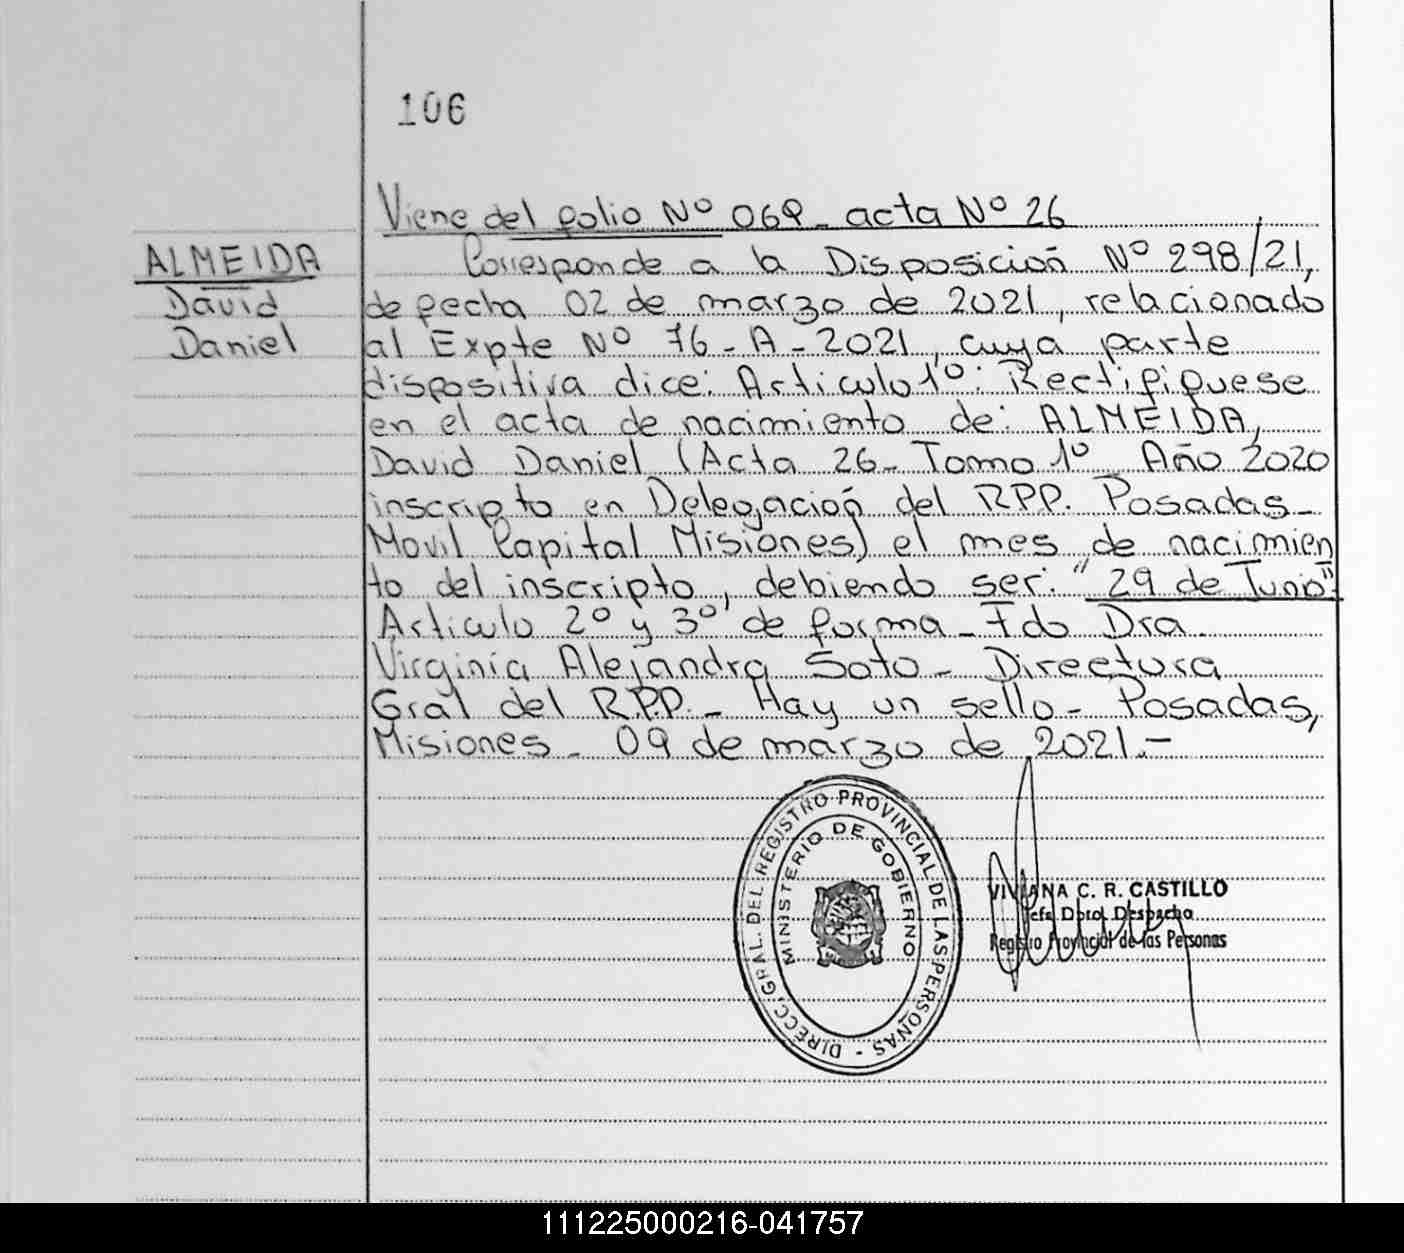 106
Viene del folio Nº 069_ acta Nº 26
ALMEIDA
David
Daniel
Corresponde a la Disposición Nº 298/21,
de fecha 02 de marzo de 2021, relacionado
al Expte Nº 76-A-2021, cuya parte
dispositiva dice: Artículo 1º: Rectifíquese
en el acta de nacimiento de: ALMEIDA,
David Daniel (Acta 26_ Tomo 1º_ Año 2020
inscripto en Delegación del RPP. Posadas_
Movil Capital Misiones) el mes de nacimien
to del inscripto, debiendo ser: "29 de Junio".
Artículo 2º y 3º de forma_ Fdo Dra.
Virginia Alejandra Soto_ Directora
Gral del R.P.P._ Hay un sello_ Posadas,
Misiones_ 09 de marzo de 2021.-
DIRECC. GRAL. DEL REGISTRO PROVINCIAL DE LAS PERSONAS -
MINISTERIO DE GOBIERNO
VIVIANA C. R. CASTILLO
Jefa Dptol Despacho
Registro Provincial de las Personas
111225000216-041757